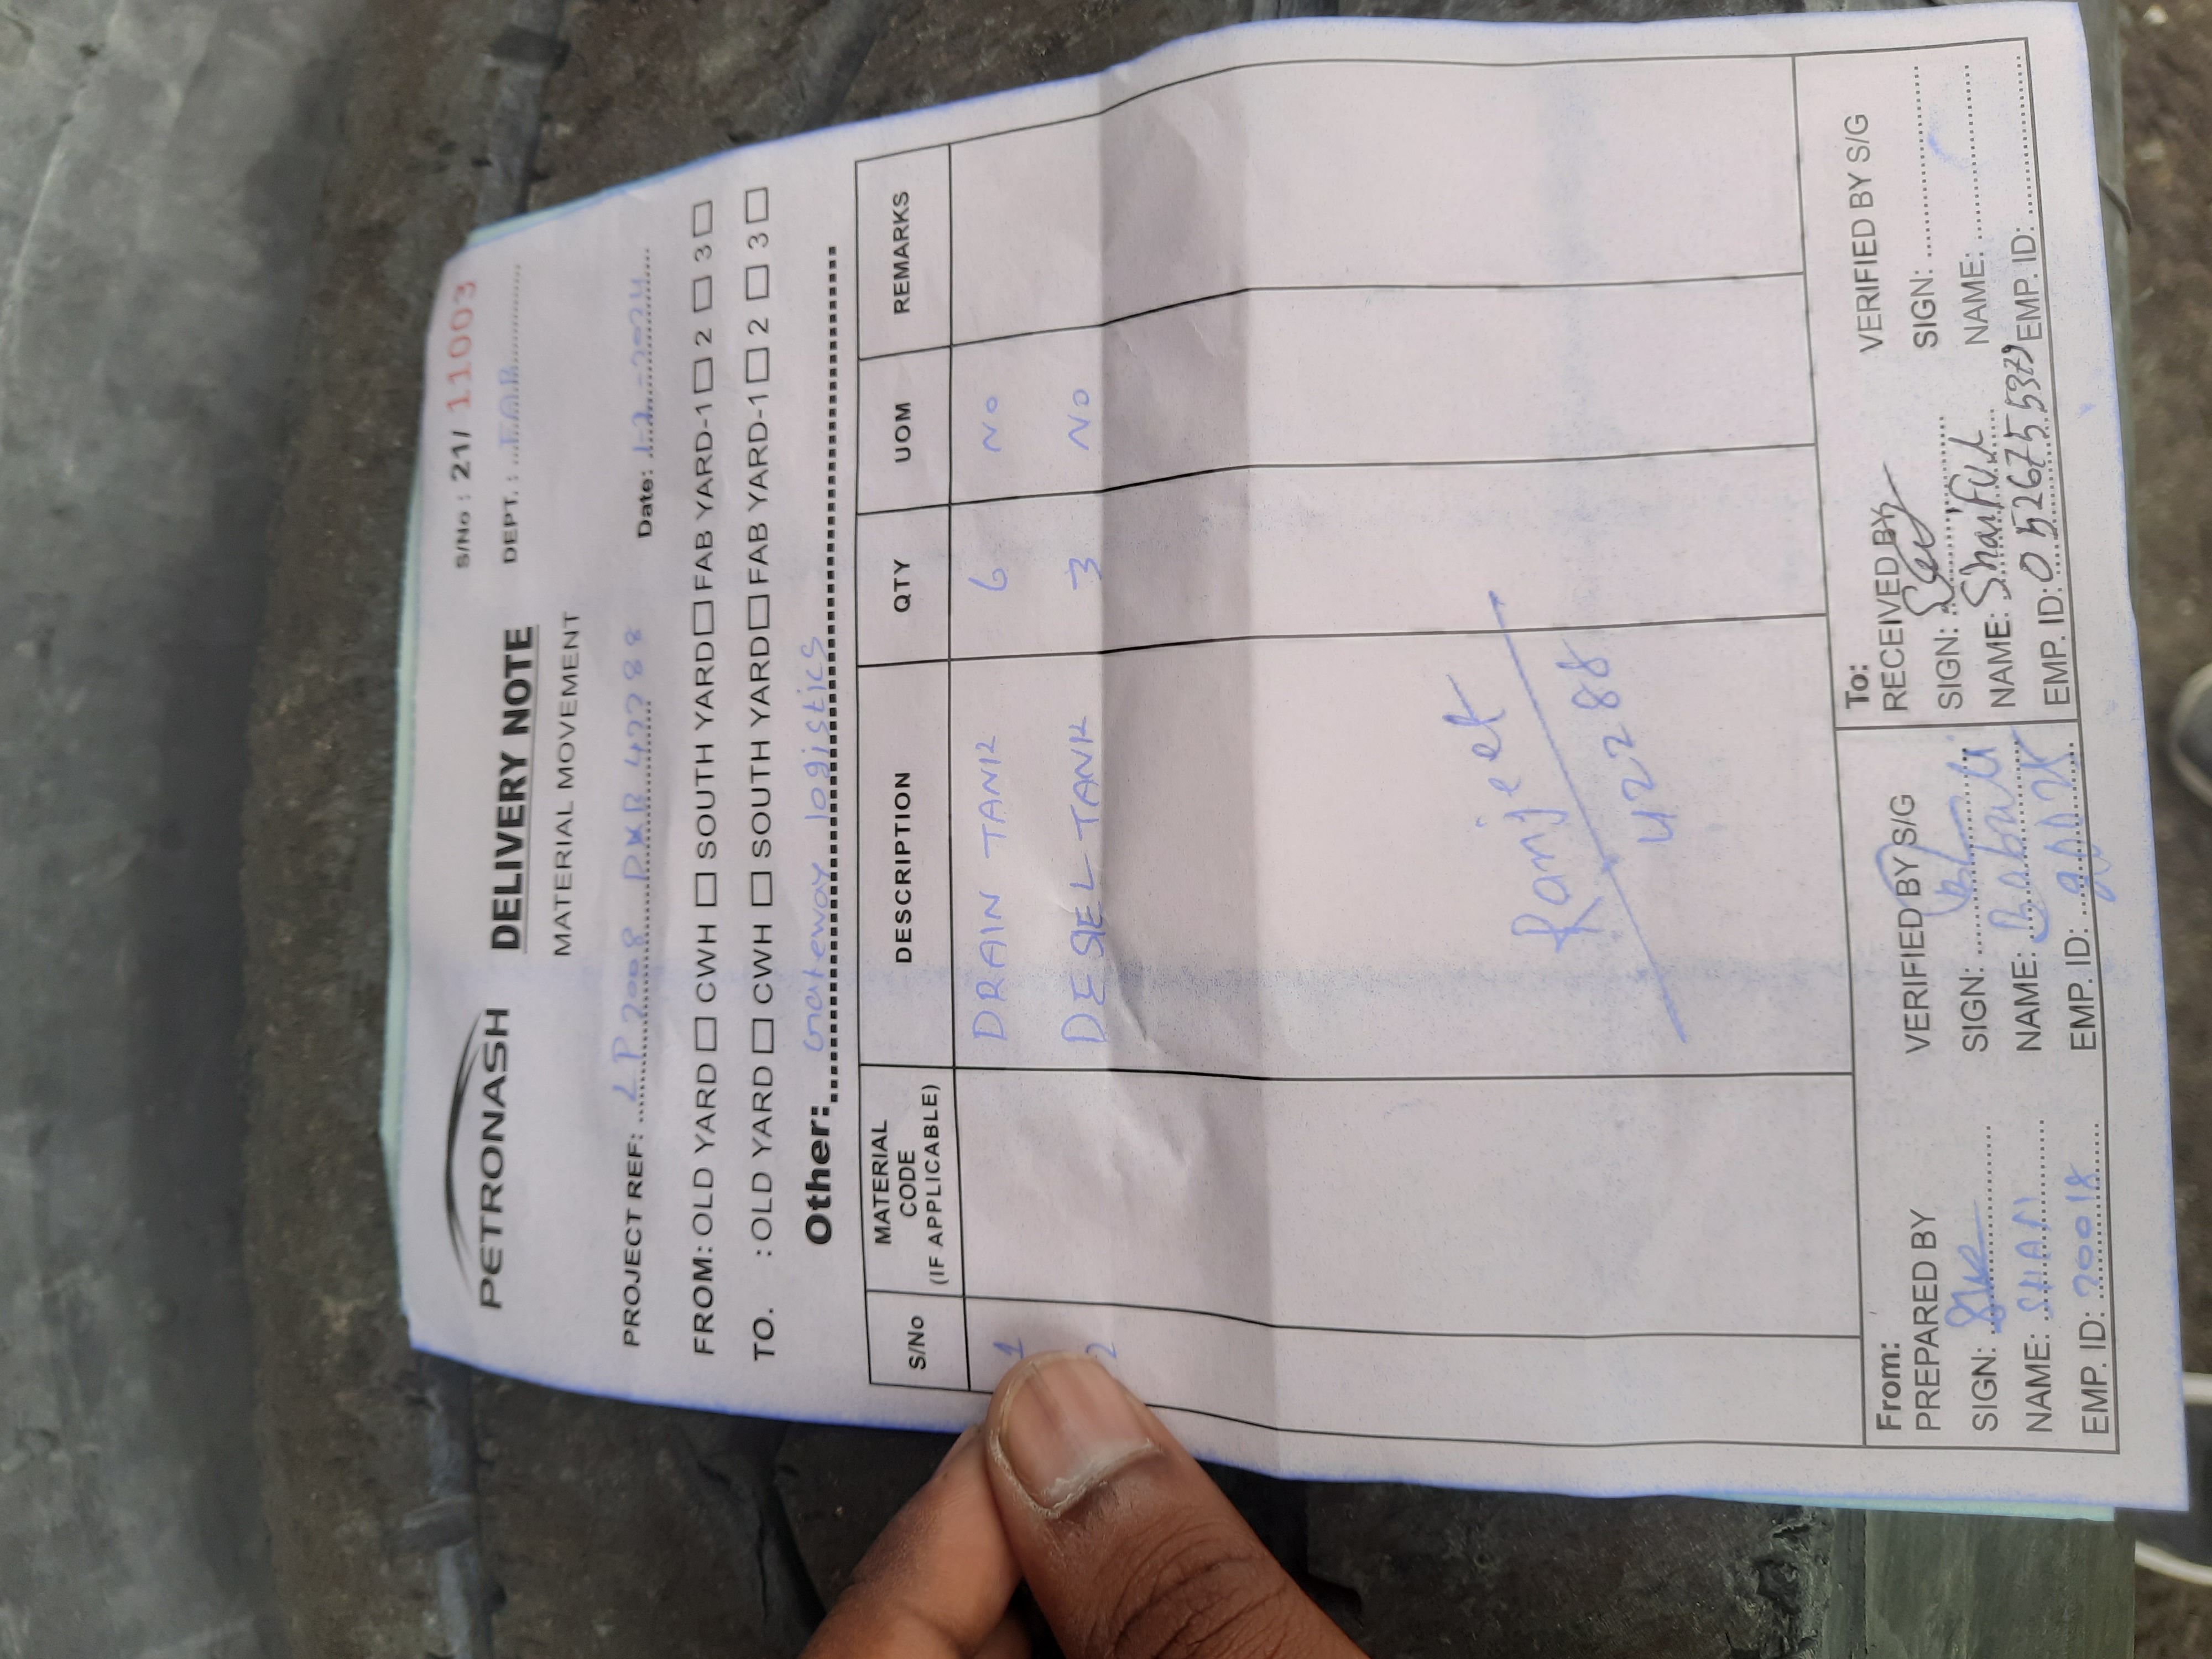 PETRONASH
DELIVERY NOTE
MATERIAL MOVEMENT
S/No : 21/ 11003
DEPT. : FAB
PROJECT REF: LP2008 DXB 42288 Date: 1-2-2024
FROM: OLD YARD CWH SOUTH YARD FAB YARD-1 2 3
TO. : OLD YARD CWH SOUTH YARD FAB YARD-1 2 3
Other: Gateway logistics
S/No MATERIAL CODE (IF APPLICABLE) DESCRIPTION QTY UOM REMARKS
1 DRAIN TANK 6 NO
2 DESIEL TANK 3 NO
Ranjeet
42288
From:
PREPARED BY
SIGN:
NAME:
EMP. ID: 20018
VERIFIED BY S/G
SIGN:
NAME:
EMP. ID:
To:
RECEIVED BY
SIGN:
NAME: Shaiful
EMP. ID: 0526755379
VERIFIED BY S/G
SIGN:
NAME:
EMP. ID: